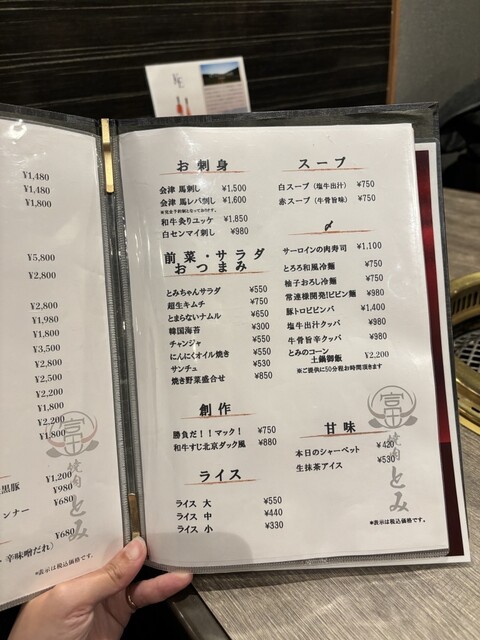 ¥1,480
¥1,480
¥1,800
¥5,800
¥2,800
¥2,800
¥1,980
¥1,800
¥3,500
¥2,800
¥2,500
¥2,200
¥1,800
¥2,200
¥1,800
¥1,200
黒豚 ¥980
ンナー ¥680
¥680
・辛味噌だれ)
*表示は税込価格です。
富
焼肉とみ
お刺身
会津 馬刺し ¥1,500
会津 馬レバ刺し ¥1,600
※完全予約制となっております。
和牛炙りユッケ ¥1,850
白センマイ刺し ¥980
前菜・サラダ
おつまみ
とみちゃんサラダ ¥550
超生キムチ ¥750
とまらないナムル ¥650
韓国海苔 ¥300
チャンジャ ¥550
にんにくオイル焼き ¥550
サンチュ ¥530
焼き野菜盛合せ ¥850
創作
勝負だ!!マック! ¥750
和牛すじ北京ダック風 ¥880
ライス
ライス 大 ¥550
ライス 中 ¥440
ライス 小 ¥330
スープ
白スープ (塩牛出汁) ¥750
赤スープ (牛骨旨味) ¥750
〆
サーロインの肉寿司 ¥1,100
とろろ和風冷麺 ¥750
柚子おろし冷麺 ¥750
常連様開発!ビビン麺 ¥980
豚トロビビンバ ¥1,400
塩牛出汁クッパ ¥980
牛骨旨辛クッパ ¥980
とみのコーン
土鍋御飯 ¥2,200
※ご提供に50分程お時間頂きます
甘味
本日のシャーベット ¥420
生抹茶アイス ¥530
富
焼肉とみ
*表示は税込価格です。